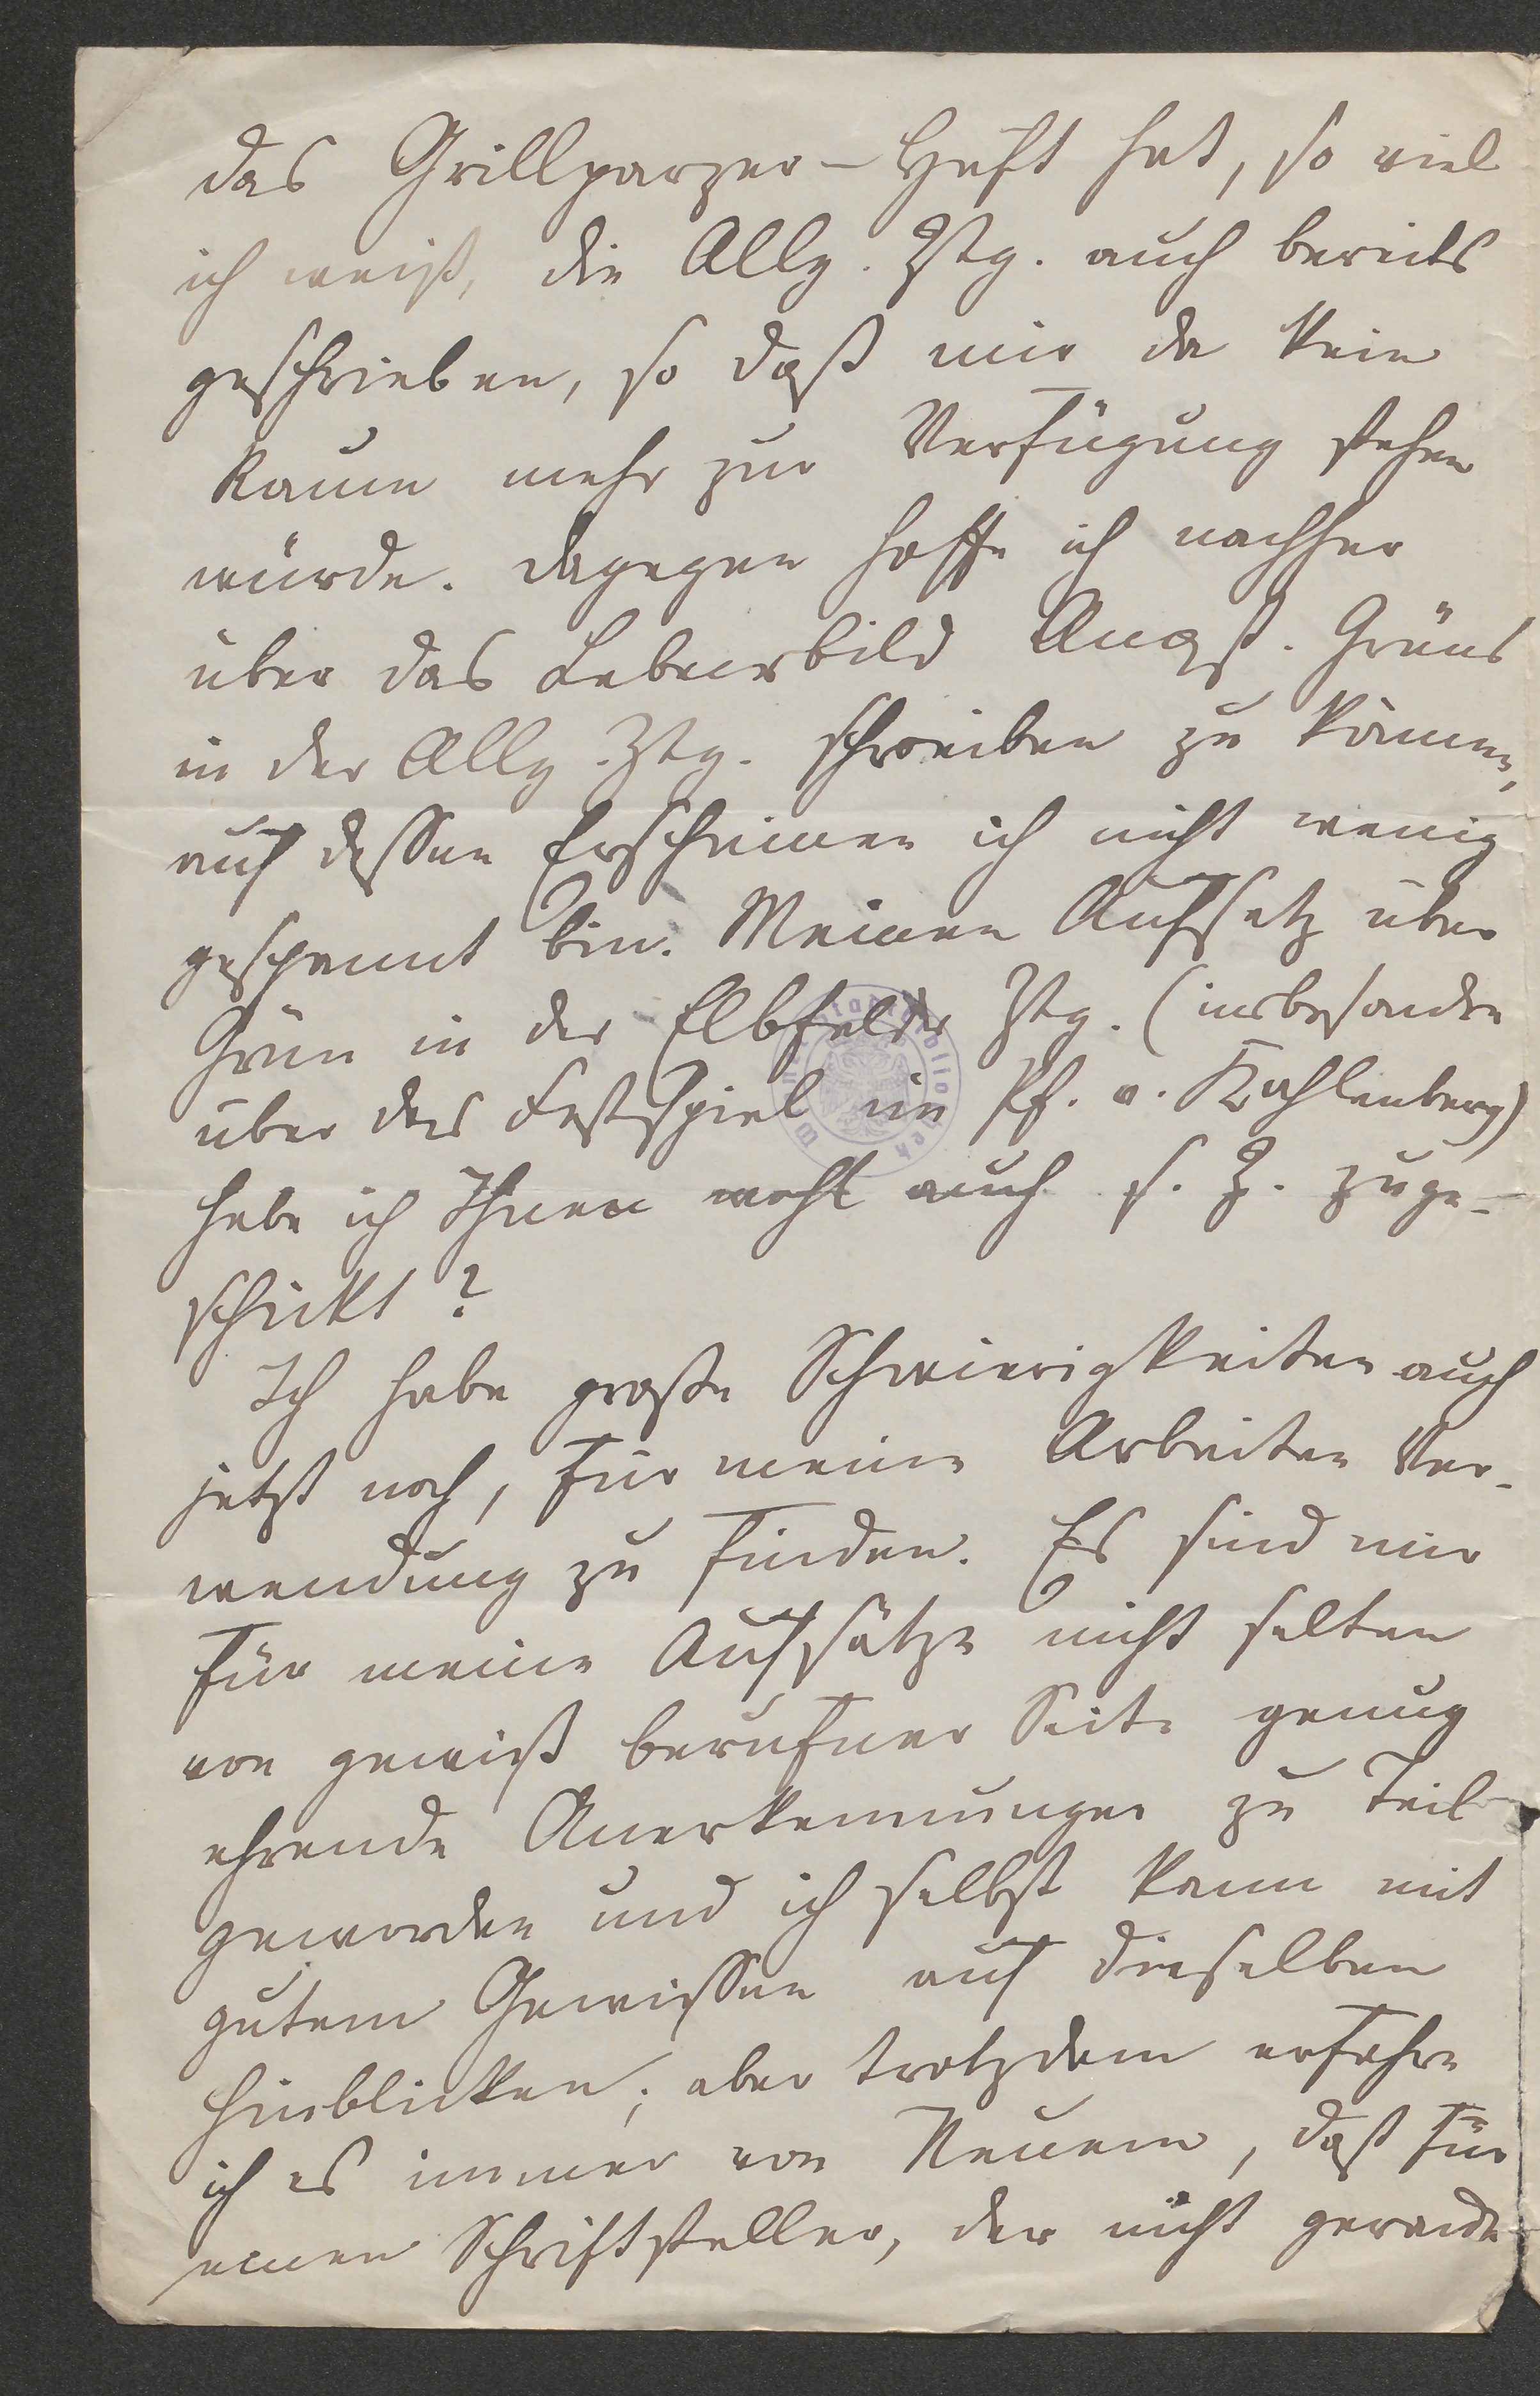 das Grillparzer-Heft hat, so viel
ich weiß, die Allg. Ztg. auch bereits
geschrieben, so daß mir da kein
Raum mehr zur Verfügung stehen
würde. Dagegen hoffe ich nachher
über das Lebensbild Anast. Grüns
in der Allg. Ztg. schreiben zu können,
auf dessen Erscheinen ich nicht wenig
gespannt bin. Meinen Aufsatz über
Grün in der Elbfelder Ztg. (insbesondre
über das Festspiel im Pf. v. Kahlenberg)
habe ich Ihnen wohl auch s. Z. zuge-
schickt?
Ich habe große Schwierigkeiten auch
jetzt noch, für meine Arbeiten Ver-
wendung zu finden. Es sind mir
für meine Aufsätze nicht selten
von gewiß berufner Seite genug
ehrende Anerkennungen zu Teil
geworden und ich selbst kann mit
gutem Gewissen auf dieselben
hinblicken; aber trotzdem erfahre
ich es immer von Neuem, daß für
einen Schriftsteller, der nicht gerade